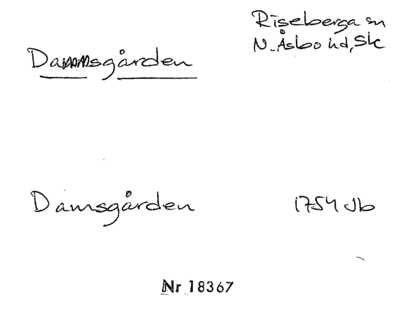 Riseberga sn
N. Åsbo hd, Sk
Dammsgården
Damsgården 1754 Jb
Nr 18367